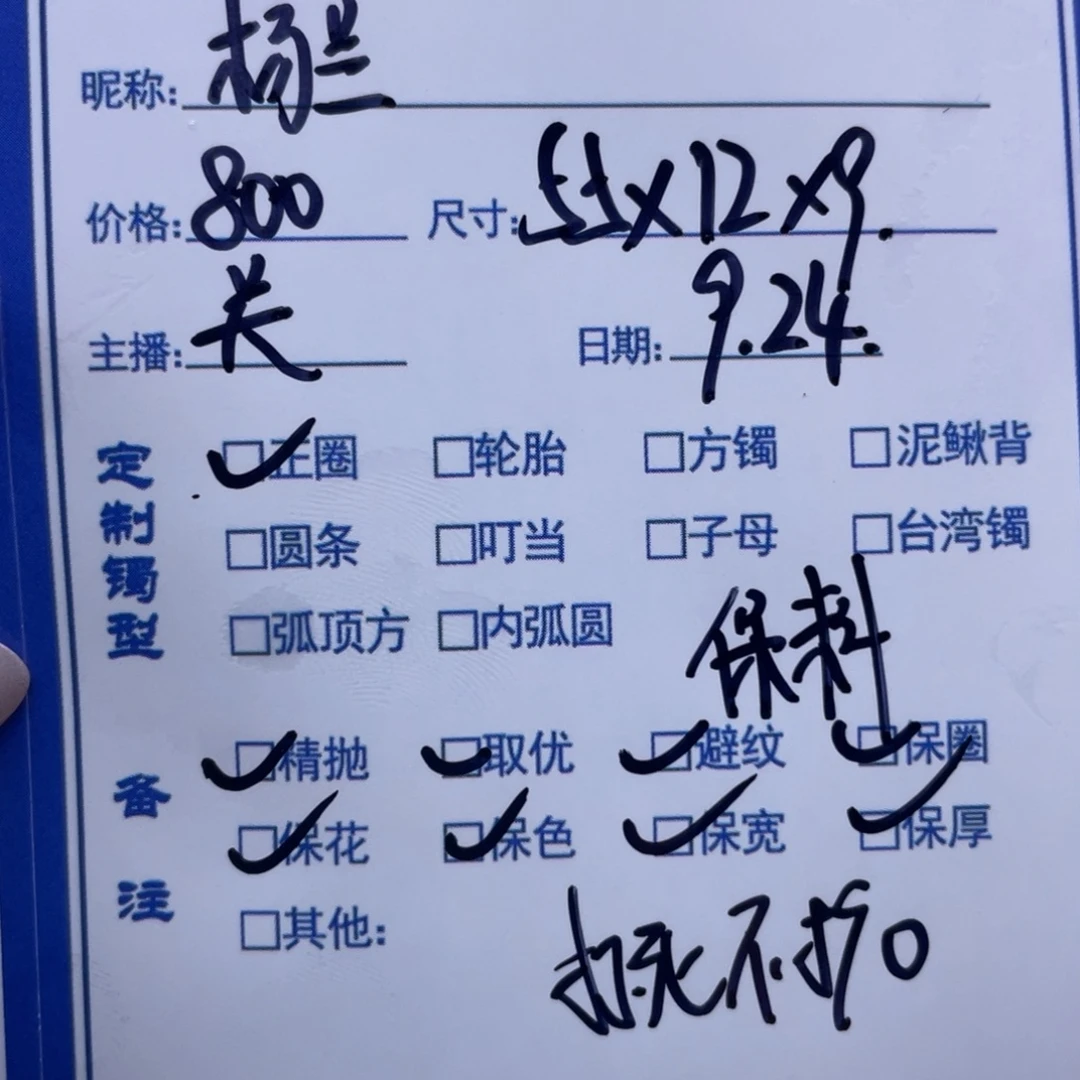 昵称:杨兰
价格:800 尺寸:55×12×9.
主播:关 日期:9.24.
定制镯型
正圈 轮胎 方镯 泥鳅背
圆条 叮当 子母 台湾镯
弧顶方 内弧圆
保料
备注
精抛 取优 避纹 保圈
保花 保色 保宽 保厚
其他:
打死不扩口